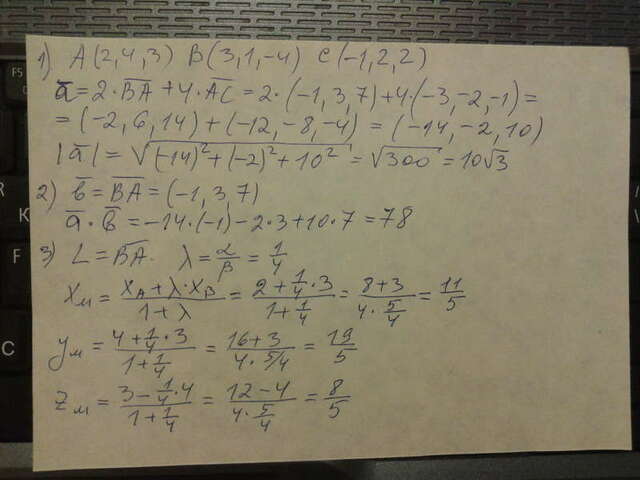 1) A(2,4,3) B(3,1,-4) C(-1,2,2)
ā = 2·BA + 4·AC = 2·(-1,3,7)+4·(-3,-2,-1)=
= (-2,6,14) + (-12,-8,-4) = (-14,-2,10)
|ā| = √((-14)²+(-2)²+10²) = √300 = 10√3
2) b̄ = BA = (-1,3,7)
ā·b̄ = -14·(-1)-2·3+10·7 = 78
3) L = BA. λ = α/β = 1/4
Xм = (XA+λ·XB)/(1+λ) = (2+1/4·3)/(1+1/4) = (8+3)/(4·5/4) = 11/5
yм = (4+1/4·3)/(1+1/4) = (16+3)/(4·5/4) = 19/5
zм = (3-1/4·4)/(1+1/4) = (12-4)/(4·5/4) = 8/5